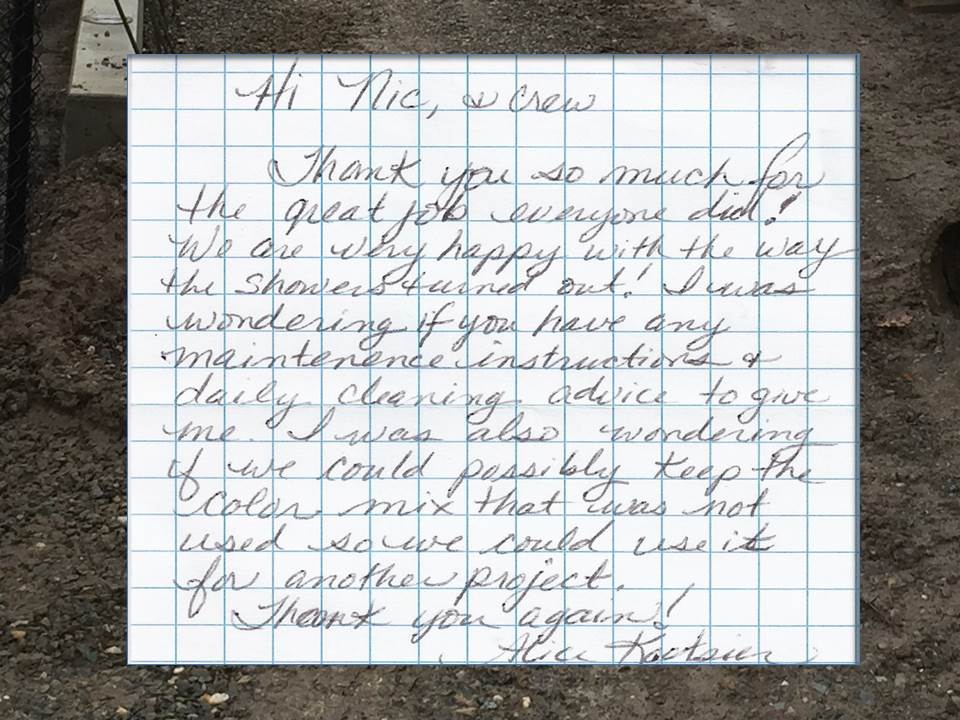 Hi Nic, & crew
Thank you so much for
the great job everyone did!
We are very happy with the way
the showers turned out! I was
wondering if you have any
maintenence instructions &
daily cleaning advice to give
me. I was also wondering
if we could possibly keep the
color mix that was not
used so we could use it
for another project.
Thank you again!
Alice